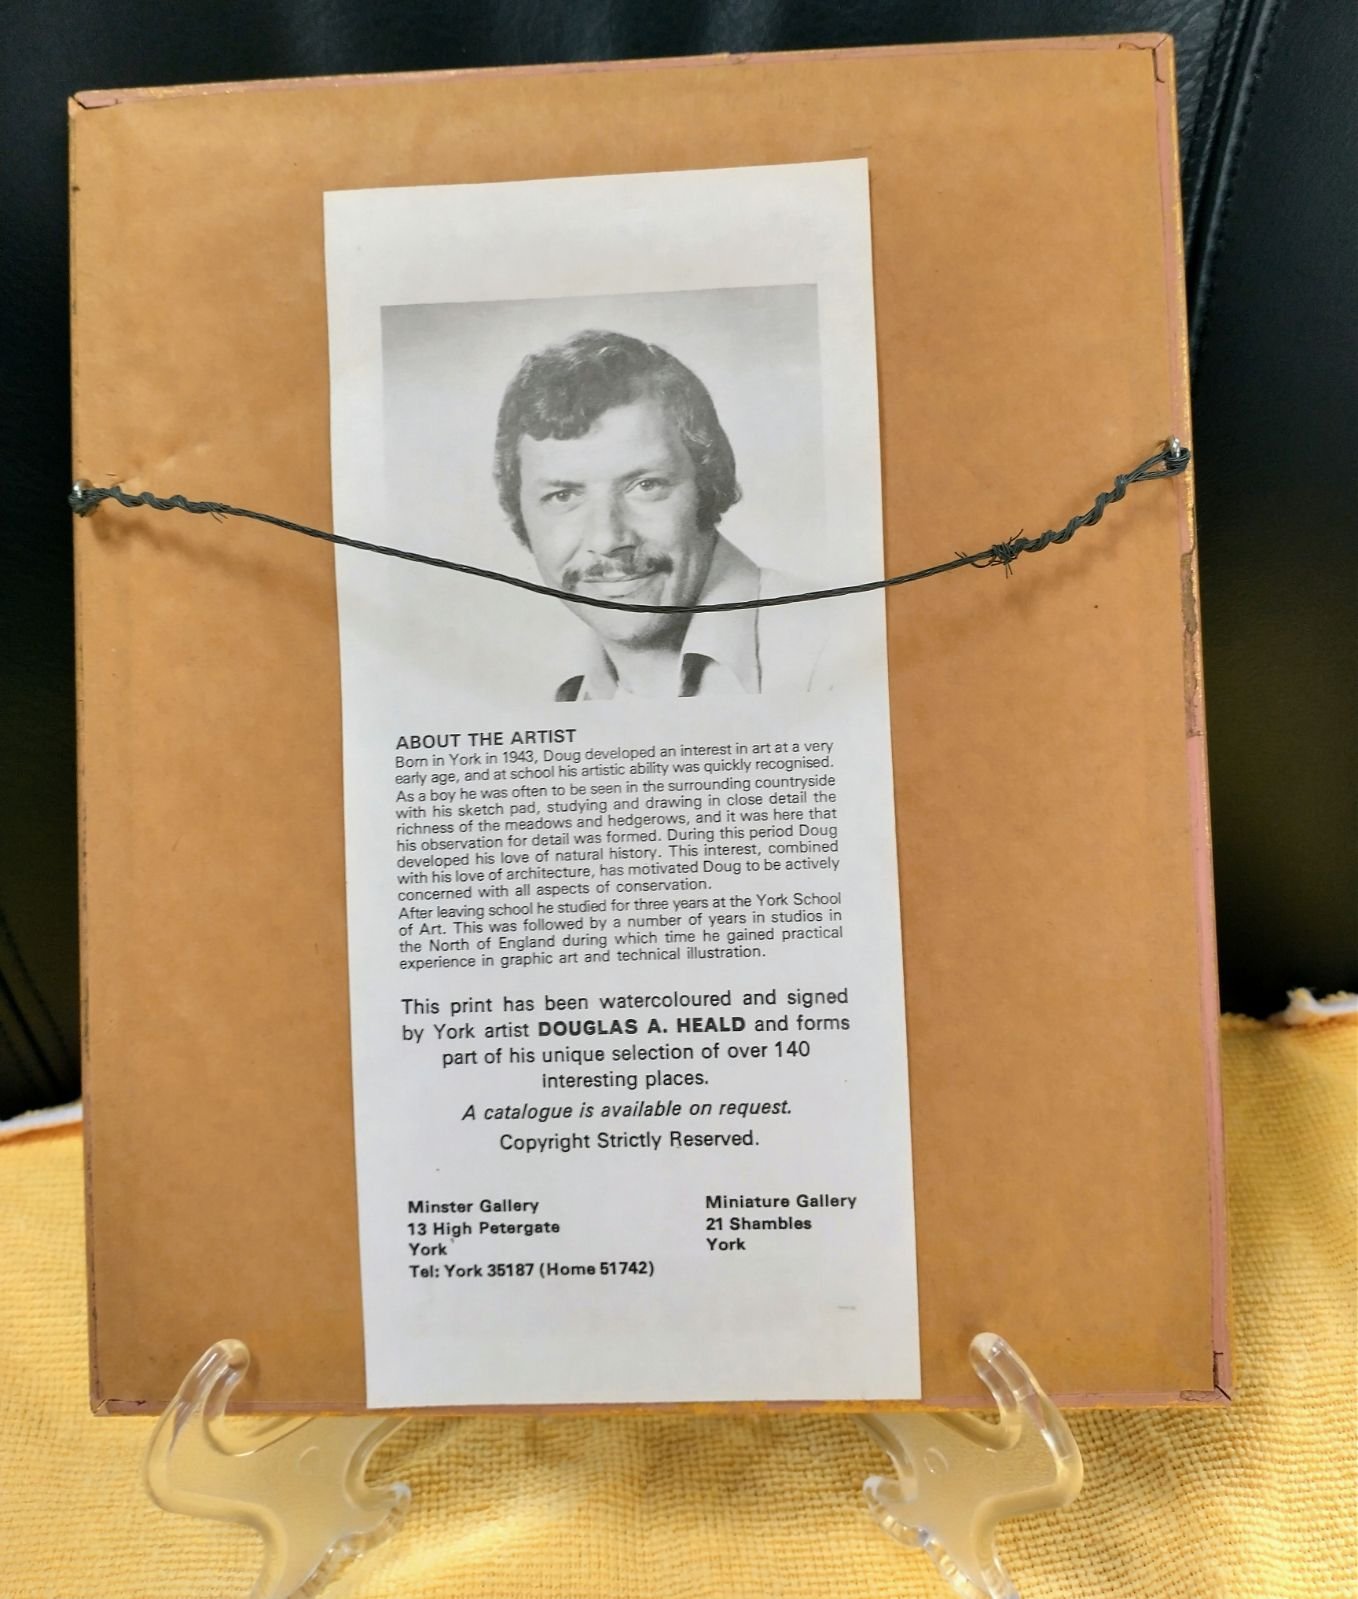 ABOUT THE ARTIST
Born in York in 1943, Doug developed an interest in art at a very
early age, and at school his artistic ability was quickly recognised.
As a boy he was often to be seen in the surrounding countryside
with his sketch pad, studying and drawing in close detail the
richness of the meadows and hedgerows, and it was here that
his observation for detail was formed. During this period Doug
developed his love of natural history. This interest, combined
with his love of architecture, has motivated Doug to be actively
concerned with all aspects of conservation.
After leaving school he studied for three years at the York School
of Art. This was followed by a number of years in studios in
the North of England during which time he gained practical
experience in graphic art and technical illustration.
This print has been watercoloured and signed
by York artist DOUGLAS A. HEALD and forms
part of his unique selection of over 140
interesting places.
A catalogue is available on request.
Copyright Strictly Reserved.
Minster Gallery
13 High Petergate
York
Tel: York 35187 (Home 51742)
Miniature Gallery
21 Shambles
York